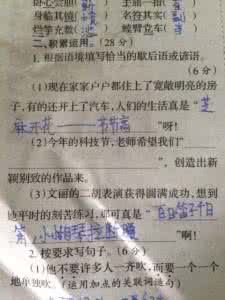 身临其境 名符其实
滥竽充数 螳臂当车
二、积累运用。(28分)
1. 根据语境填写恰当的歇后语或谚语。
(6分)
(1)现在家家户户都住上了宽敞明亮的房
子,有的还开上了汽车,人们的生活真是“芝
麻开花——节节高”呀!
(2)今年的科技节,老师希望我们“
”,创造出新
颖别致的作品来。
(3)文丽的二胡表演获得圆满成功,想到
她平时的刻苦练习,那可真是“百日笛子千日
箫,小小胡琴拉断腰”啊!
2. 按要求写句子。(6分)
(1)他不要许多人一齐吹,而要一个一个
地单独吹(运用加点的关联词造句)